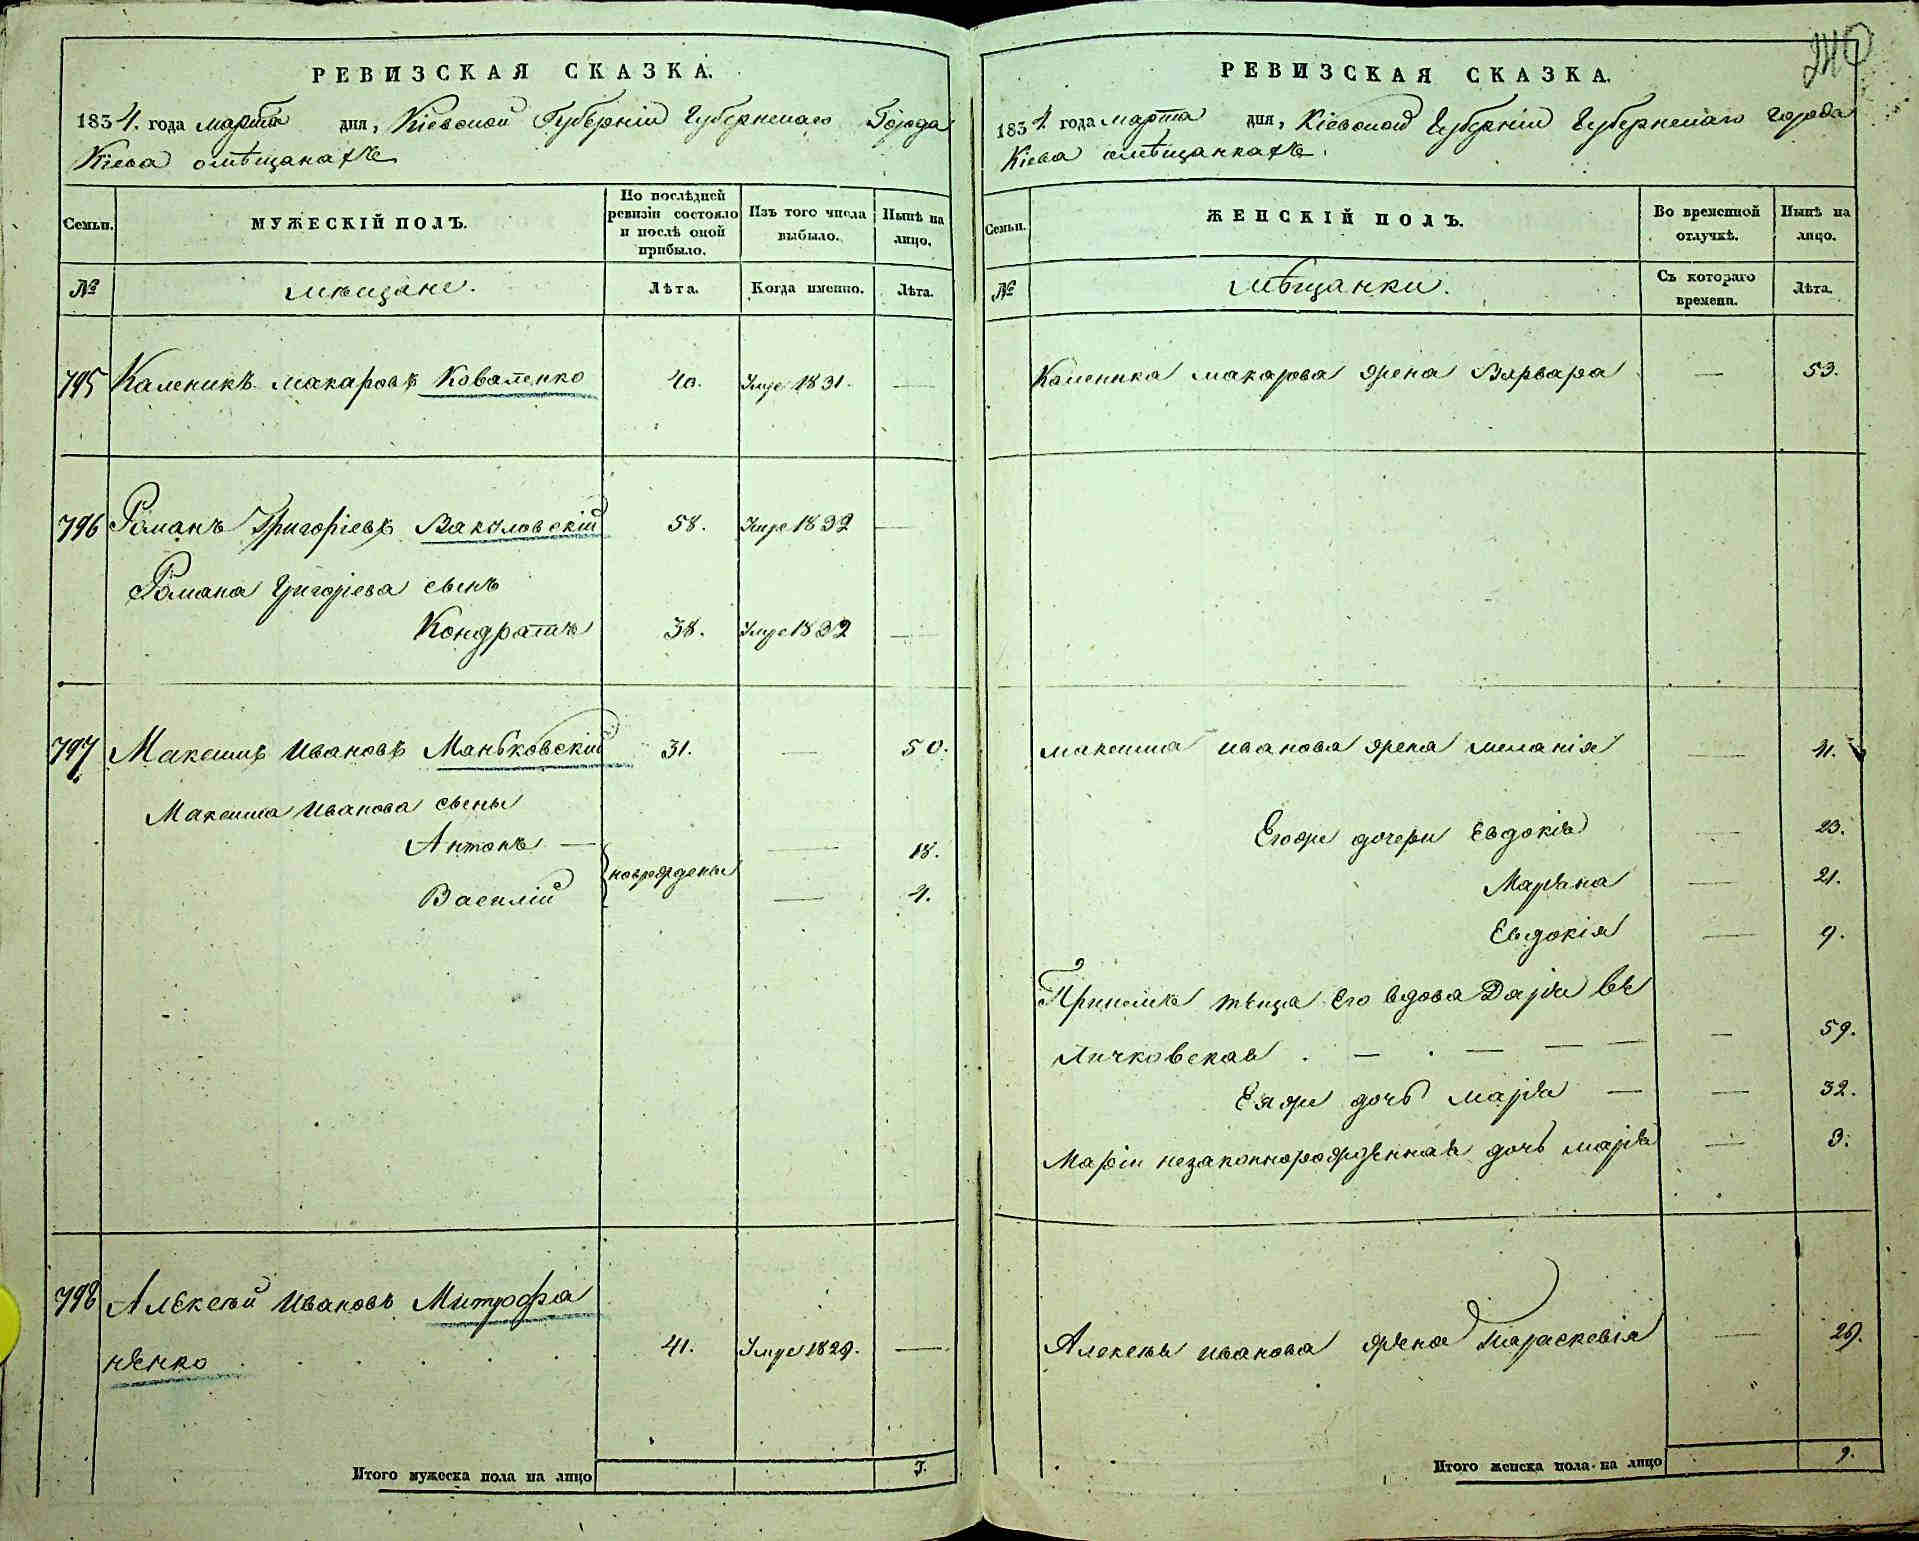 РЕВИЗСКАЯ СКАЗКА.
1834. года марта дня, Кіевской Губерніи Губернскаго Города
Кіева о мѣщанахъ
Семьи.
МУЖЕСКІЙ ПОЛЪ.
По послѣдней ревизіи состояло и послѣ оной прибыло.
Изъ того числа выбыло.
Нынѣ на лицо.
№
мѣщане.
Лѣта.
Когда именно.
Лѣта.
795 Каленикъ Макаровъ Коваленко 40. Умре 1831. —
796 Романъ Григорьевъ Вакуловскій 58. Умре 1832 —
Романа Григорьева сынъ
Кондратъ 38. Умре 1832 —
797 Максимъ Ивановъ Маньковскій 31. — 50.
Максима Иванова сыны
Антонъ — новорожденны — 18.
Василій — 4.
798 Алексѣй Ивановъ Митрофа
ненко 41. Умре 1829. —
Итого мужеска пола на лицо 3.
240
РЕВИЗСКАЯ СКАЗКА.
1834 года марта дня, Кіевской Губерніи Губернскаго города
Кіева о мѣщанкахъ.
Семьи.
ЖЕНСКІЙ ПОЛЪ.
Во временной отлучкѣ.
Нынѣ на лицо.
№
Мѣщанки.
Съ котораго времени.
Лѣта.
Каленика Макарова жена Варвара — 53.
Максима Иванова жена Меланія — 41.
Его же дочери Евдокія 23.
Маріана — 21.
Евдокія — 9.
его вдова Дарья
— 59.
Ея же дочь Марія — — 32.
Маріи незаконнорожденная дочь Марія — 3.
Алексѣя Иванова жена Параскевія — 29.
Итого женска пола на лицо 9.